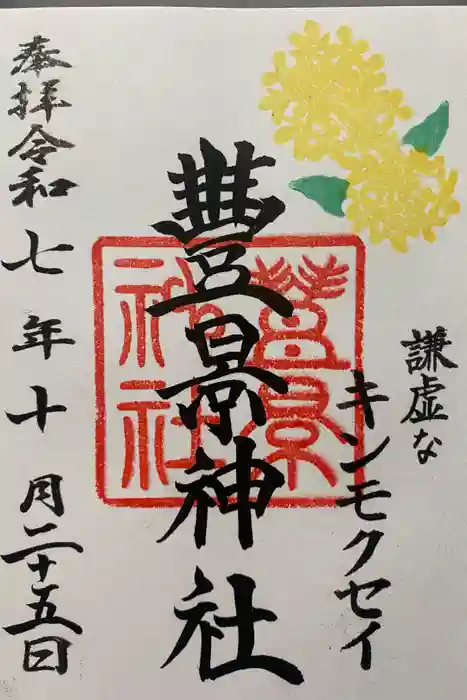 謙虚な
キンモクセイ
豊景神社
豊景
神社
奉拝令和七年十月二十五日